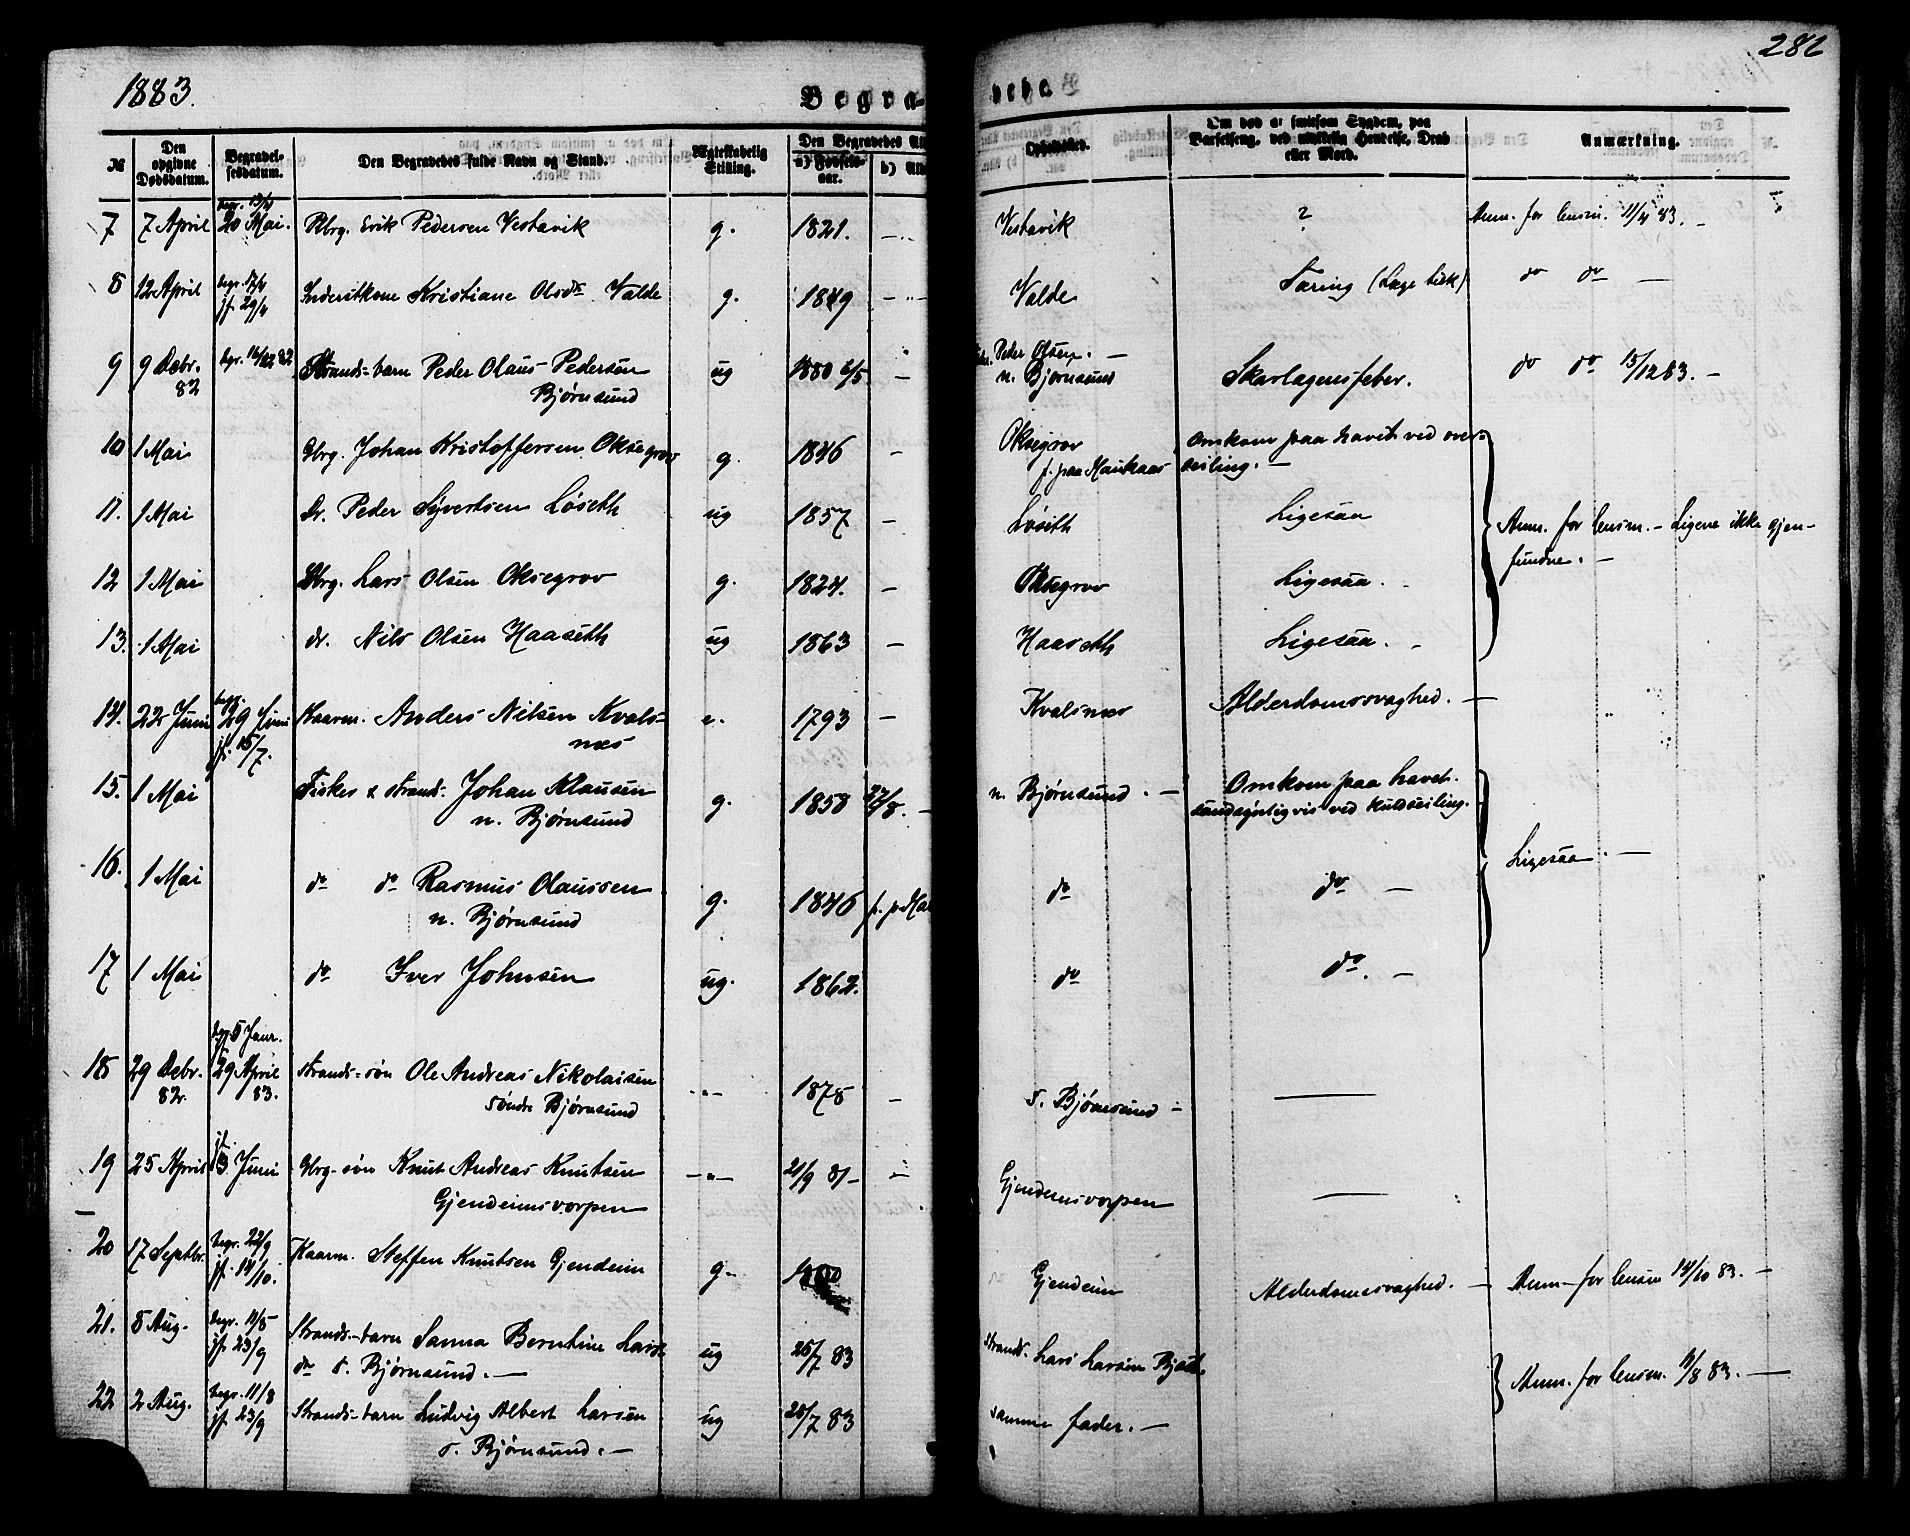 282
1883.
Begra-
vede.
№
Den opgivne Dødsdatum.
Begravelsesdatum.
Den Begravedes fulde Navn og Stand.
Ægteskabelig Stilling.
Den Begravedes
a) Fødselsaar.
b)
Opholdssted.
Om død af smitsom Sygdom, paa Barselseng, ved ulykkelig Hendelse, Drab eller Mord.
Anmærkning.
7 7 April begr. 13/4 20 Mai. Erik Pedersen Vestavik g. 1821. Vestavik ? Anm. for lensm. 11/4 83. -
8 12 April begr. 17/4 jf. 29/4 Kristiane Olsdr Valde g. 1849 Valde Tæring do do -
9 9 Decbr. 82 begr. 16/12 82 Strands-barn Peder Olaus Pedersen ug 1880 6/5 - Peder Olsen. -
Bjørnsund n. Bjørnsund Skarlagensfeber. do do 15/12 83. -
10 1 Mai Gbrg. Johan Kristoffersen Oksegrov g. 1846 - Oksegrov Omkom paa havet ved over-
seiling. -
11. 1 Mai Dr. Peder Sivertsen Løseth ug 1857 - Løseth Ligesaa Anm. for lensm. - Ligene ikke gjen-
fundne. -
12 1 Mai Gbrg. Lars Olsen Oksegrov g. 1824. - Oksegrov Ligesaa. -
13. 1 Mai dr. Nils Olsen Haaseth ug 1863 - Haaseth Ligesaa. -
14. 22 Juni begr. 29 Juni jf. 15/7. Kaarm. Anders Nilsen Kvals- e. 1793 - Kvalsnæs Alderdomssvaghed. -
næs
15. 1 Mai Fisker & strands. Johan Klausen g. 1850 27/8. - n. Bjørnsund. - Omkom paa havet.
n. Bjørnsund sandsynligvis ved kuldseiling. Ligesaa. -
16. 1 Mai do do Rasmus Olaussen g. 1846 do do -
n. Bjørnsund
17 1 Mai do Iver Johnsen ug. 1862. do do. -
18 29 Decbr. 82. begr. 5 Janr. 29 April 83. Strands-søn Ole Andreas Nikolaisen -"- 1878 - s. Bjørnsund - —
søndre Bjørnsund
19 25 April jf. 3 Juni Gbrg-søn Knut Andreas Knutsen -"- 21/9 81- - Gjendemsvorpen —
Gjendemsvorpen
20 17 Septbr. begr. 22/9 jf. 14/10. Kaarm. Steffen Knutsen Gjendem g. Gjendem Alderdomssvaghed. - Anm. for lensm 14/10 83. -
21. 8 Aug. begr. 11/8 jf. 23/9 Strands-barn Sanna Berntine Lars- ug 25/7 83 Strands. Lars Larsen
dr s. Bjørnsund. - Anm. for lensm. 11/8 83. -
22 2 Aug. begr. 11/8 jf. 23/9 Strands-barn Ludvig Albert Larsen ug 25/7 83 samme fader. -
s. Bjørnsund. -